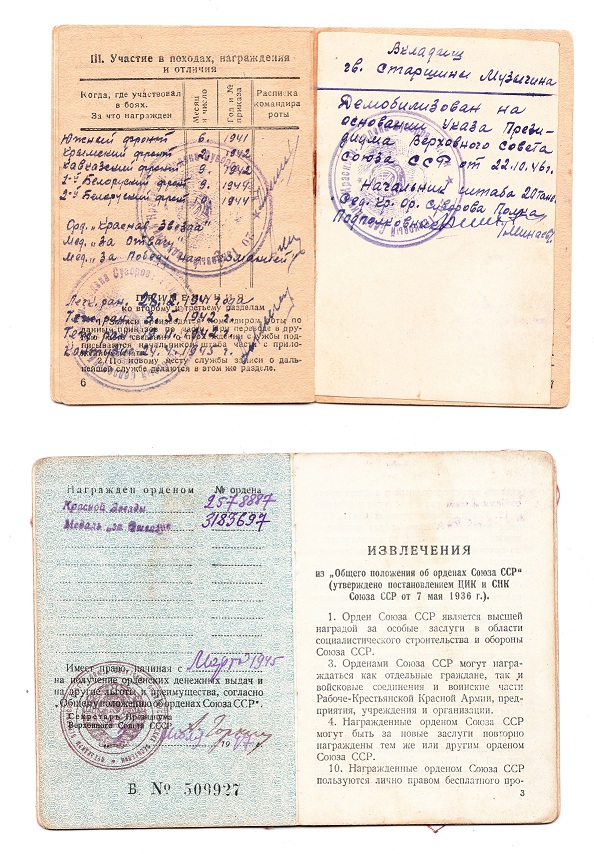 III. Участие в походах, награждения
и отличия
Когда, где участвовал
в боях.
За что награжден
Месяц
и число
Год и №
приказа
Расписка
командира
роты
Южний фронт 6. 1941
Крымский фронт 1942
Кавказский фронт 9. 1942
1-й Белоруский фронт 9. 1944
2-й Белоруский фронт 10. 1944
Орд. „Красная Звезда"
Мед. „За Отвагу"
Мед. „За Победу над
Легк. ран. 1941 года
ко второму и третьему разделам
Тяж. ран. 3. 1942 г.
6
Вкладыш
гв. Старшины Музычина
Демобилизован на
основании Указа Прези-
диума Верховного Совета
Союза ССР от 22.10.46 г.
Начальник штаба 20 Танк.
Сед. Кр. Ор. Суворова Полка
Подполковник
/Минаев/
7
Награжден орденом № ордена
Красной Звезды 2578887
Медаль „за Отвагу 3183697
Имеет право, начиная с Марта 1945
на получение орденских денежных выдач и
на другие льготы и преимущества, согласно
„Общему положению об орденах Союза ССР".
Секретарь Президиума
Верховного Совета СССР
19 47 г.
Б № 509927
ИЗВЛЕЧЕНИЯ
из „Общего положения об орденах Союза ССР"
(утверждено постановлением ЦИК и СНК
Союза ССР от 7 мая 1936 г.).
1. Ордеи Союза ССР является высшей
наградой за особые заслуги в области
социалистического строительства и обороны
Союза ССР.
3. Орденами Союза ССР могут награ-
ждаться как отдельные граждане, так и
войсковые соединения и воинские части
Рабоче-Крестьянской Красной Армии, пред-
приятия, учреждения и организации.
4. Награжденные орденом Союза ССР
могут быть за новые заслуги повторно
награждены тем же или другим орденом
Союза ССР.
10. Награжденные орденом Союза ССР
пользуются лично правом бесплатного про-
3